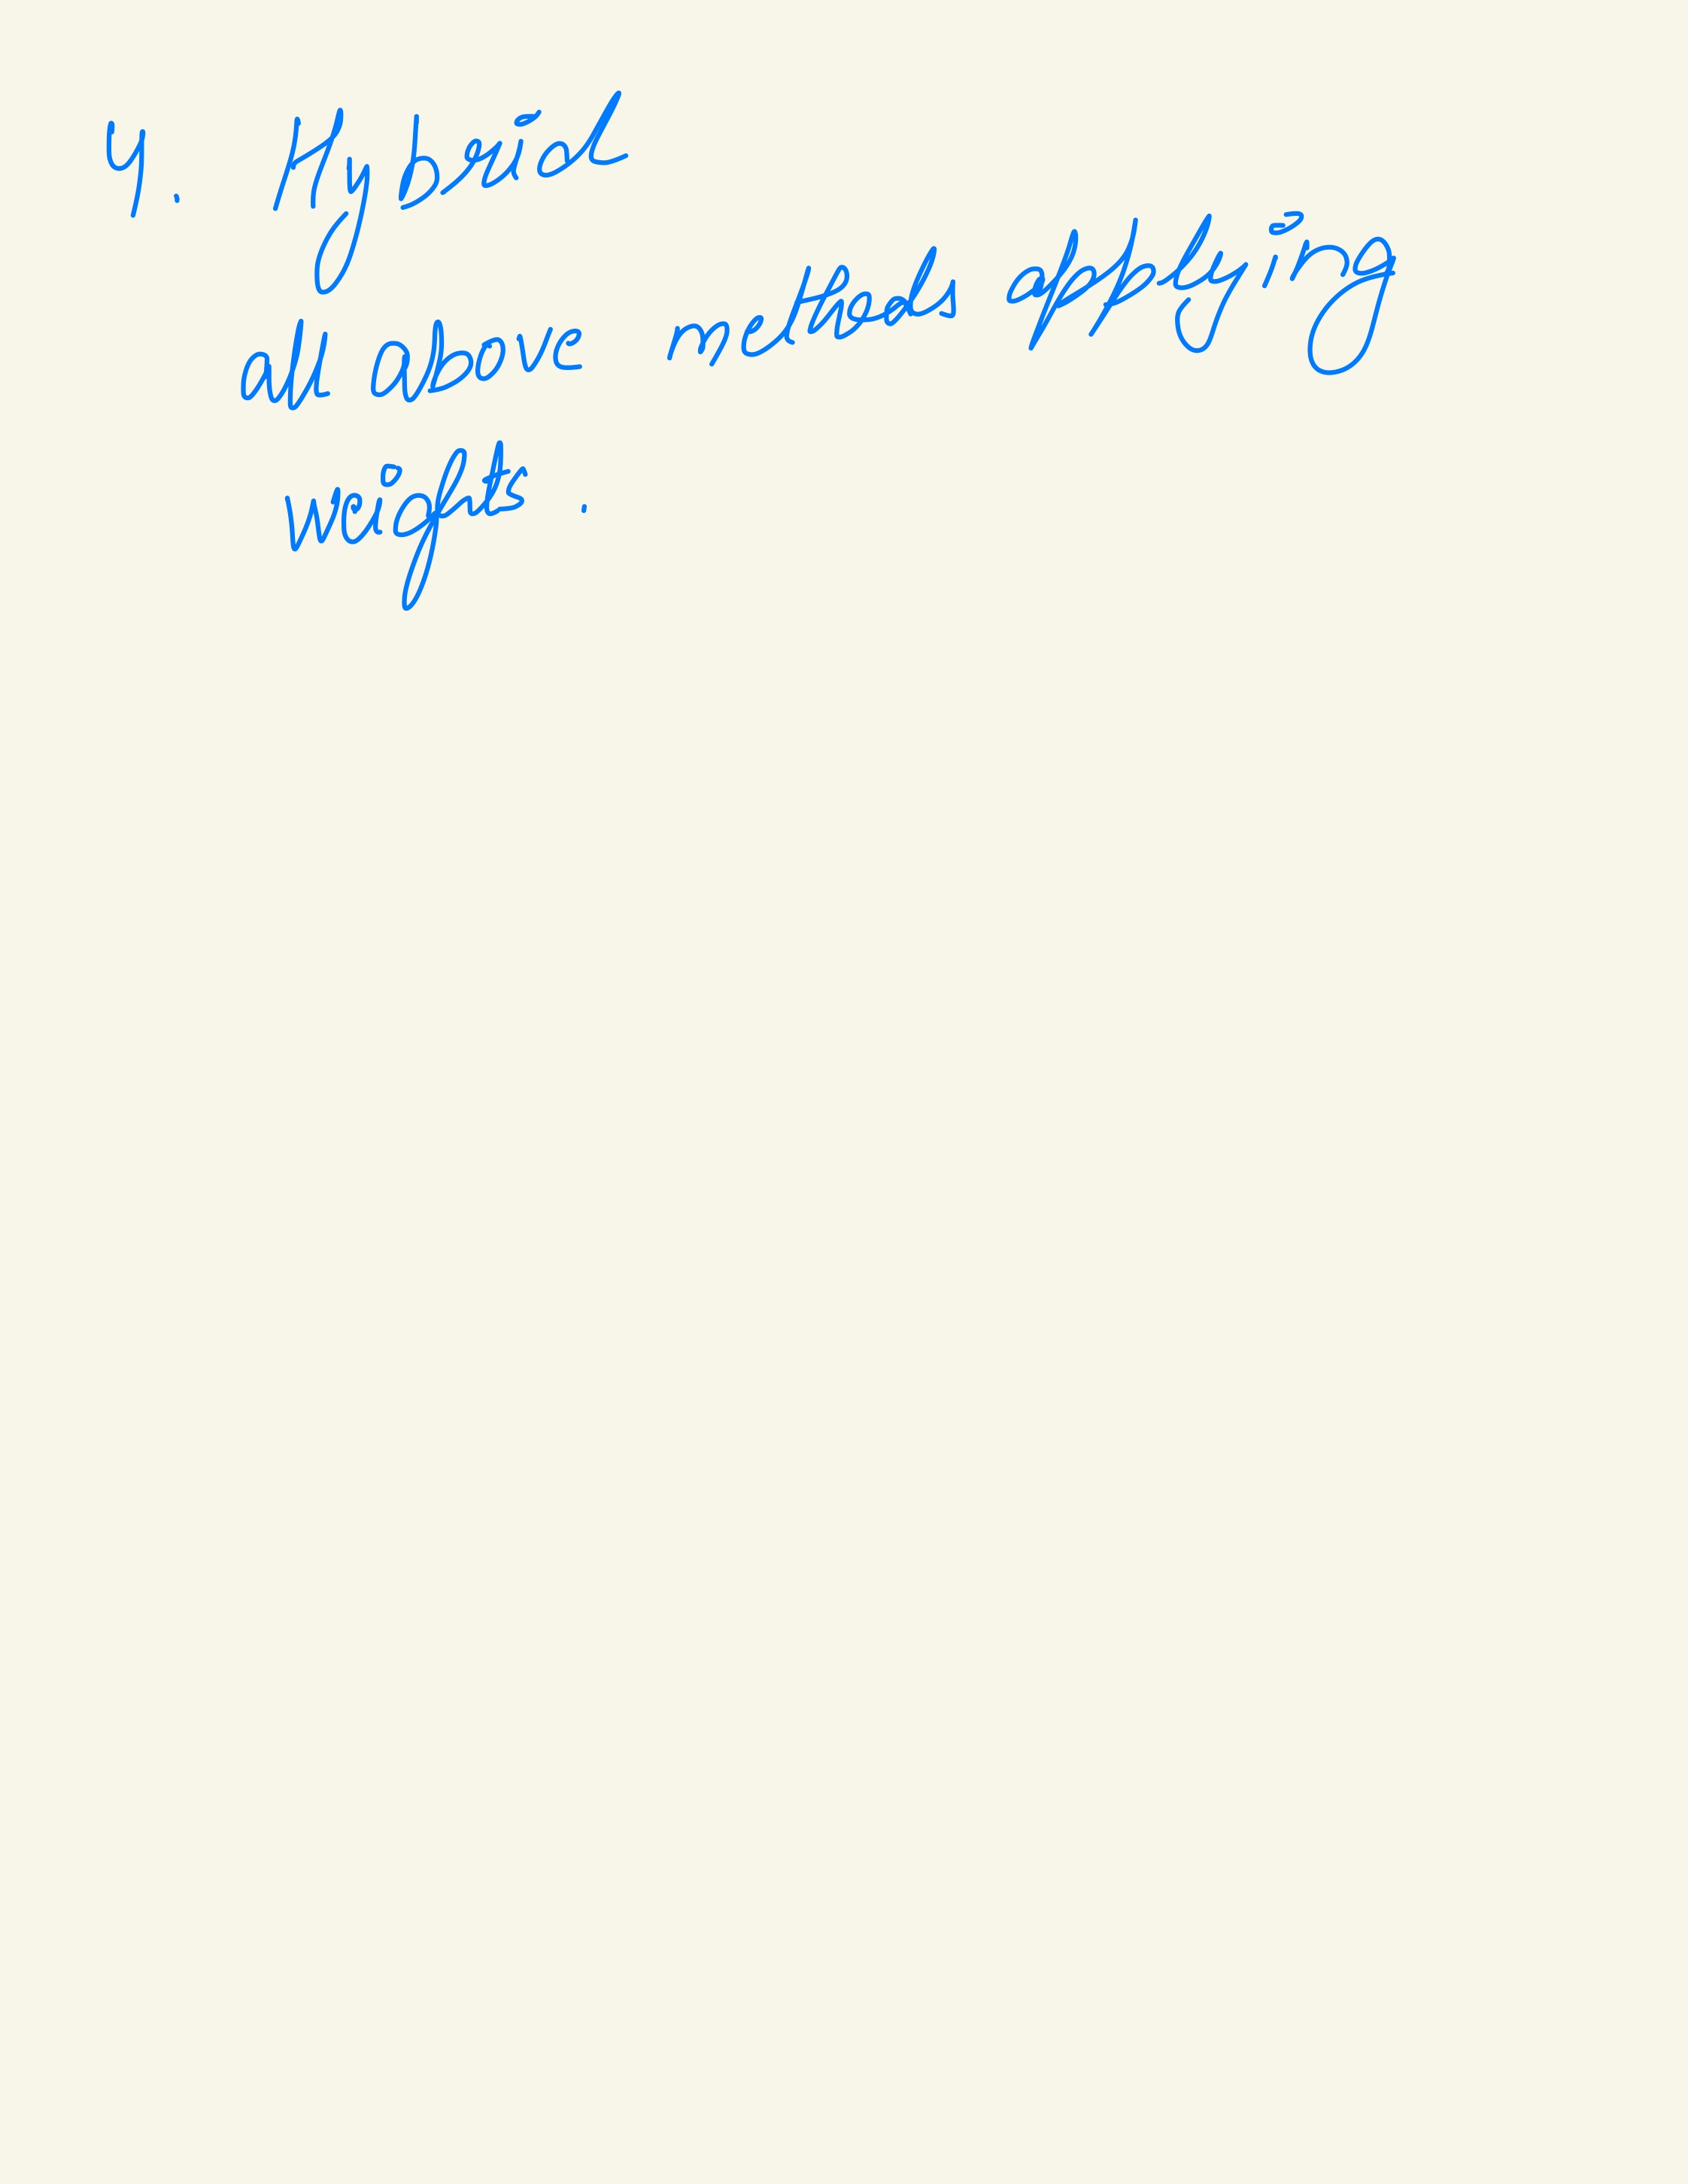 4. Hybrid
all above methods applying
weights.